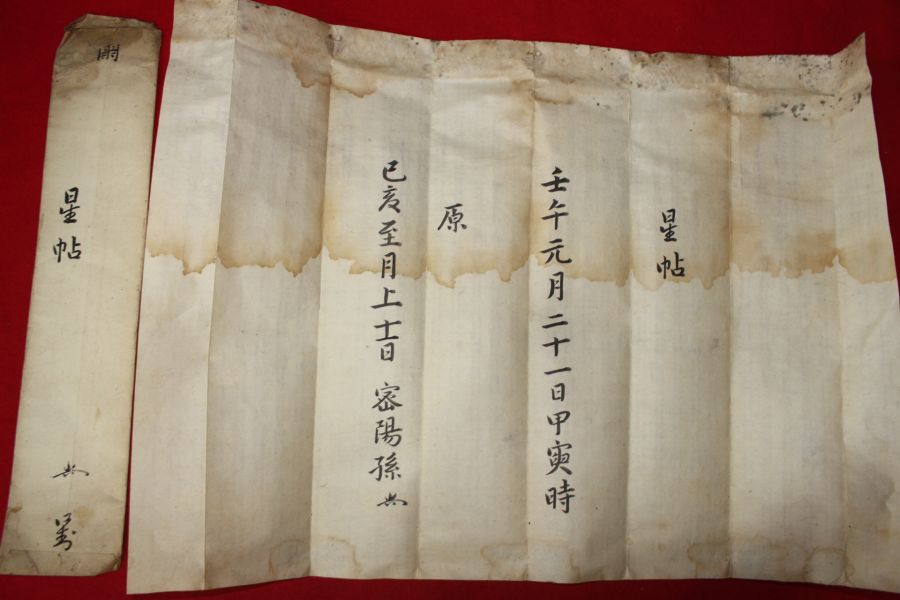 星帖
壬午元月二十一日甲寅時
原
己亥至月上日 密陽孫
星帖